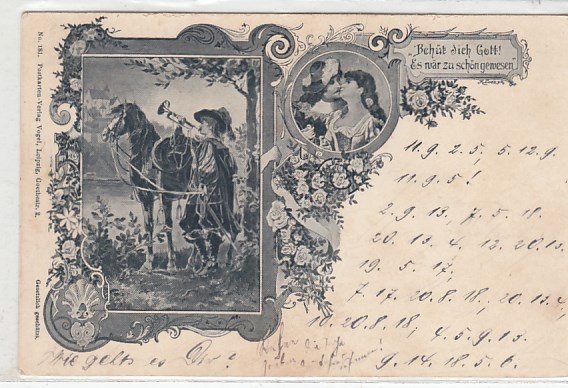 No. 182. Postkarten-Verlag Vogel, Leipzig, Goethestr. 2.
Gesetzlich geschützt.
„Behüt dich Gott!
Es wär zu schön gewesen"
11.9. 2.5, 5.12.9.
11.9.5!
2.9.13, 7.5.18.
20.13.4, 12.20.13.
19.5.17,
7.17.20.8.18, 20.13.4
10.20.8.18, 4.5.9.13.
9.14.18.5.6.
Wie gehts es Dir?